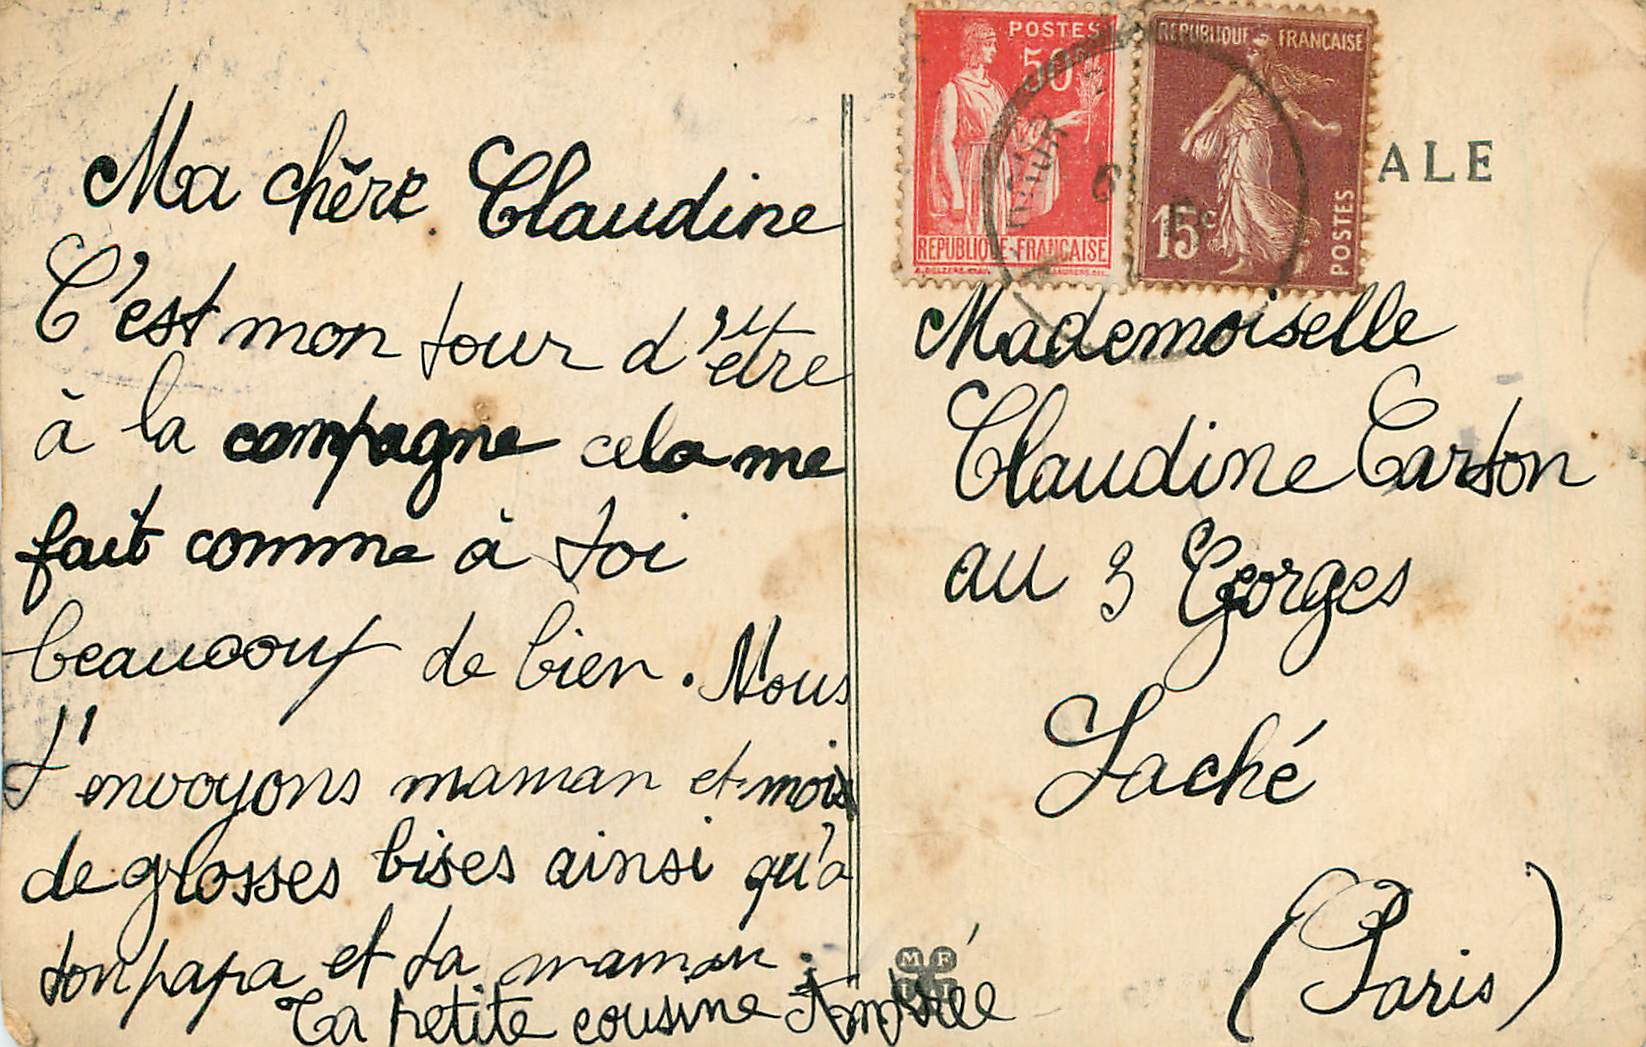 Ma chère Claudine
C'est mon tour d'être
à la campagne cela me
fait comme à toi
beaucoup de bien. Nous
t'envoyons maman et moi
de grosses bises ainsi qu'à
ton papa et ta maman.
Ta petite cousine
POSTES
50
REPUBLIQUE FRANÇAISE
REPUBLIQUE FRANÇAISE
15c
POSTES
ALE
Mademoiselle
Claudine Carton
au 3 Georges
Saché
(Paris)